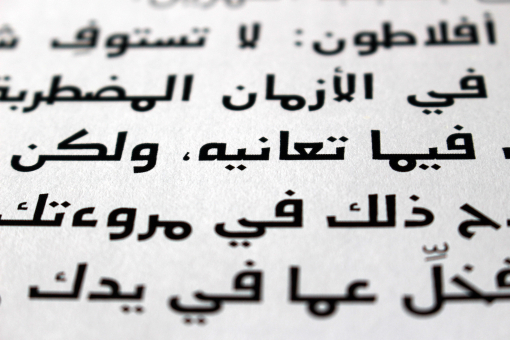 أفلاطون: لا تستوفِ
في الأزمان المضطربة
فيما تعانيه، ولكن
ذلك في مروءتك
فخلِّ عما في يدك